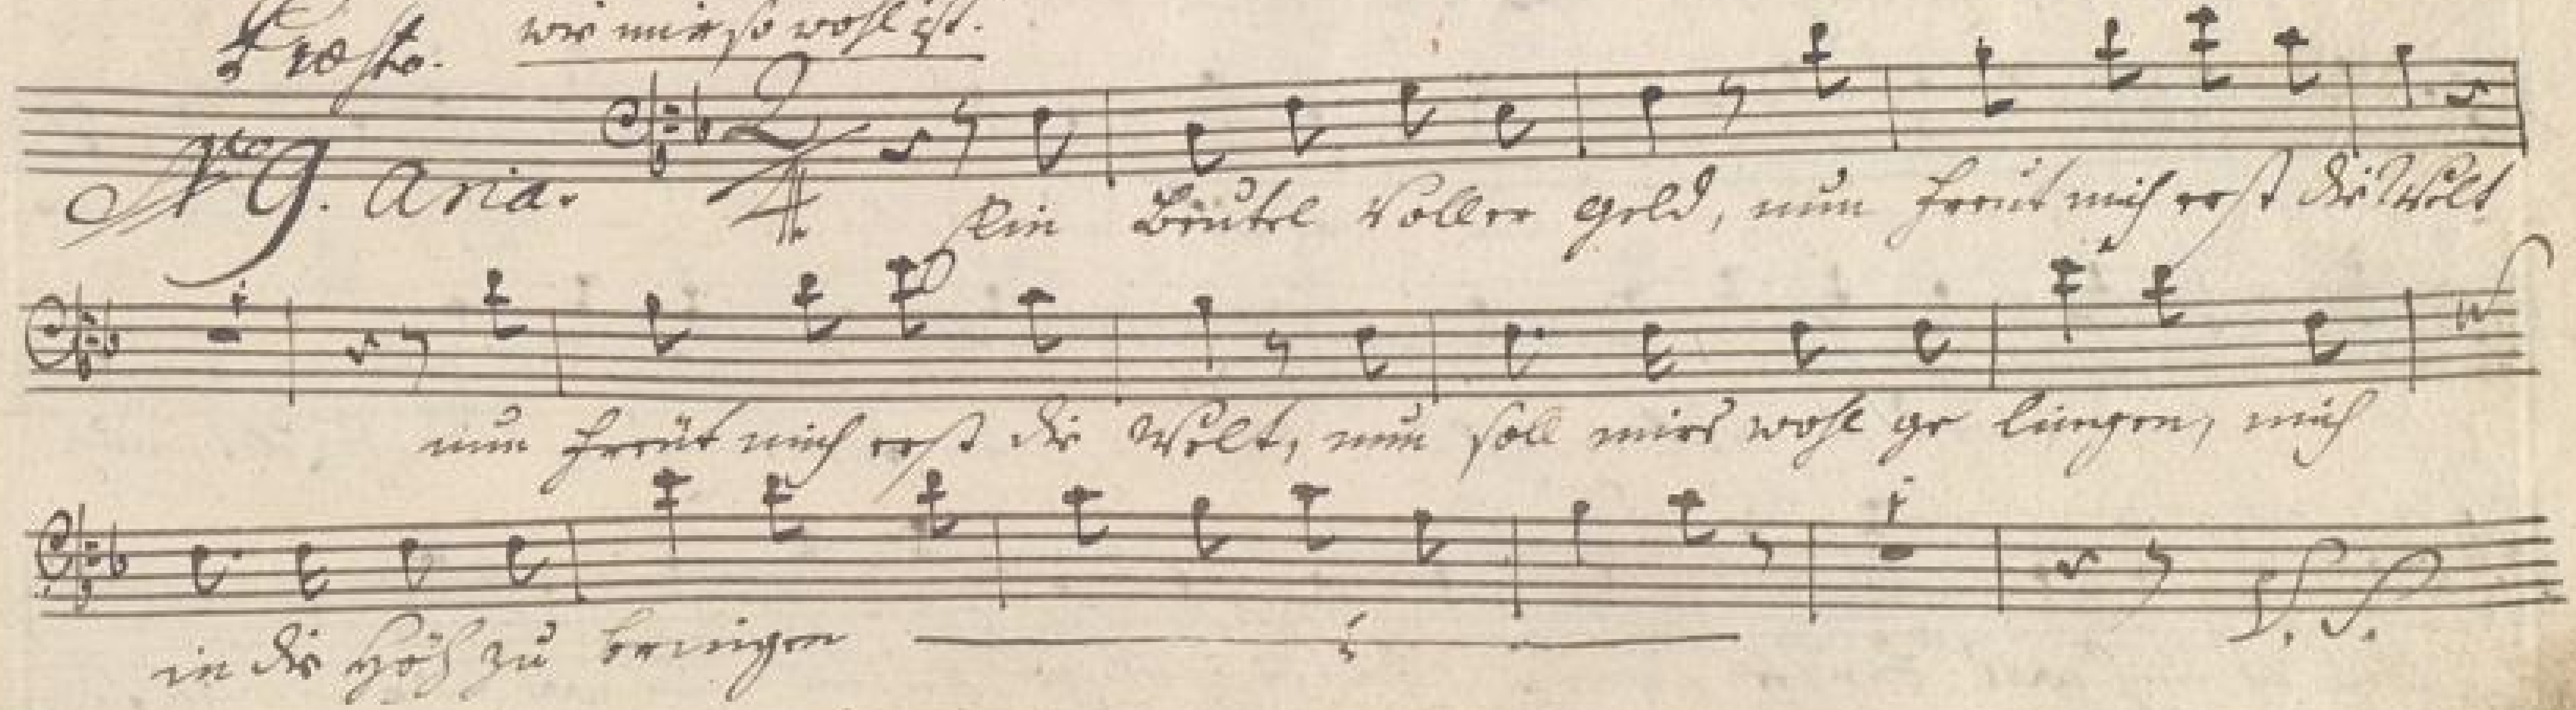 Presto. wie mir so wohl ist.
Nro 9. Aria. 2/4
Ein Beütel voller geld, nun freüt mich erst die Welt
nun freüt mich erst die Welt, nun soll mirs wohl ge lingen, mich
in die Höh zu bringen
V. S.